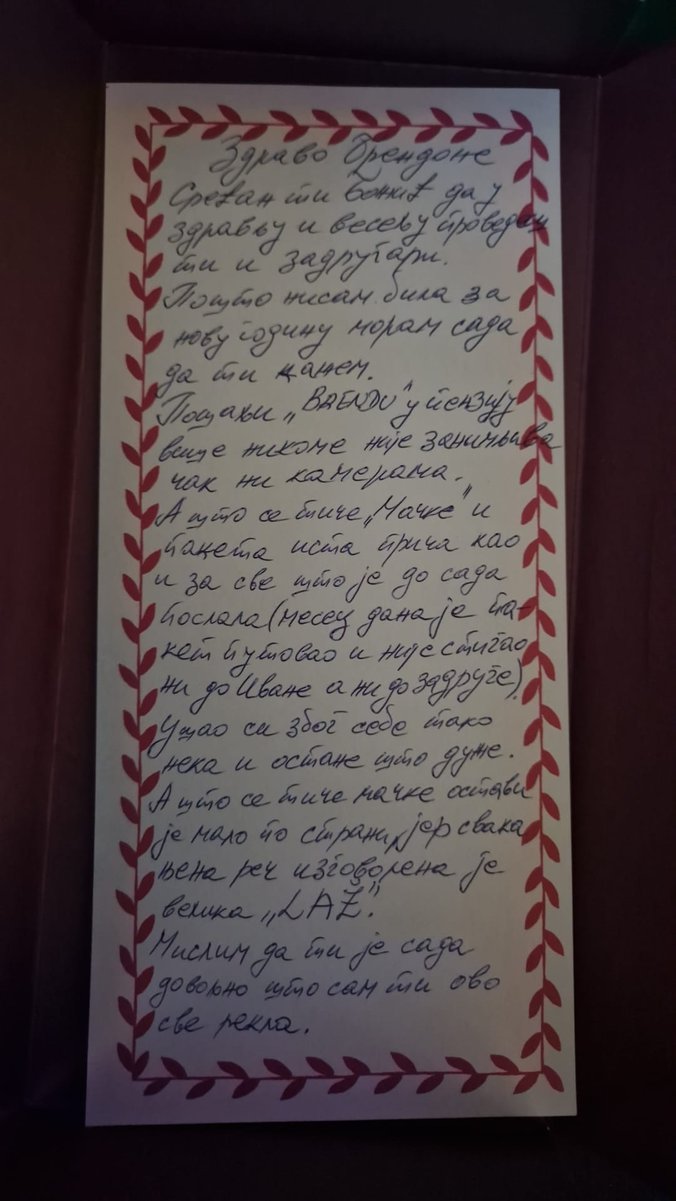 Здраво Брендоне
Срећан ти Божић да у
здрављу и весељу проведеш
ти и задругари.
Пошто нисам била за
нову годину морам сада
да ти кажем.
Пошаљи „ у пензију
више никоме није занимљива
чак ни камерама.
А што се тиче „Мачке" и
пакета иста прича као
и за све што је до сада
послала (месец дана је па-
кет путовао и није стигао
ни до Иване а ни до Задруге)
Ушао си због себе тако
нека и остане што дуже.
А што се тиче мачке остави
је мало по страни, јер свака
њена реч изговорена је
велика „LAŽ".
Мислим да ти је сада
довољно што сам ти ово
све рекла.